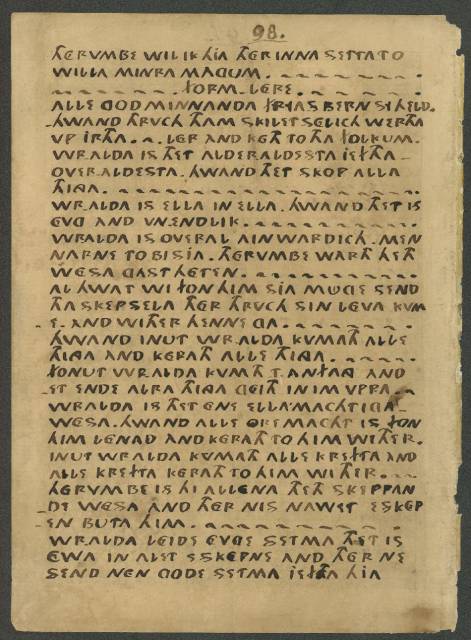 98.
THERVMBE WIL IK HIA THER INNA SETTA TO
WILLA MINRA MAGUM.
FORM LERE.
ALLE GOD MINNANDA FRYAS BERN SY HELD.
HWAND THRUCH THAM SKILET SELICH WERTHA
VP IRTHA. LER AND KETH TO THA FOLKUM.
WRALDA IS THET ALDERALDESTA IEFTHA
OVERALDESTA. HWAND THET SKOP ALLA
THINGA.
WRALDA IS ELLA IN ELLA. HWAND THET IS
EVG AND VN.ENDLIK.
WRALDA IS OVERAL AINWARDICH. MEN
NARNE TO BISIA. THERVMBE WARTH THETH
WESA GAST HETEN.
AL HWAT WI FON HIM SIA MUGE SEND
THA SKEPSELA THER THRVCH SIN LEVA KVM
E. AND WITHER HENNE GA.
HWAND INUT WRALDA KVMATH ALLE
THINGA AND KERATH ALLE THINGA.
FONUT WRALDA KVMTH T.ANFANG AND
ET ENDE ALRA THINGA GEITH IN IM VPPA.
WRALDA IS THET ENE ELLA MACHTIGA
WESA. HWAND ALLE ORE MACHT IS FON
HIM LENAD AND KERATH TO HIM WITHER.
INUT WRALDA KVMATH ALLE KREFTA AND
ALLE KREFTA KERATH TO HIM WITHER.
THERVMBE IS HI ALLENA THETH SKEPPAN
DE WESA AND THER NIS NAWET ESKEP
EN BUTA HIM.
WRALDA LEIDE EVGE SETMA THET IS
EWA IN ALET ESKEPNE AND THER NE
SEND NEN GODE SETMA IEFTHA HIA